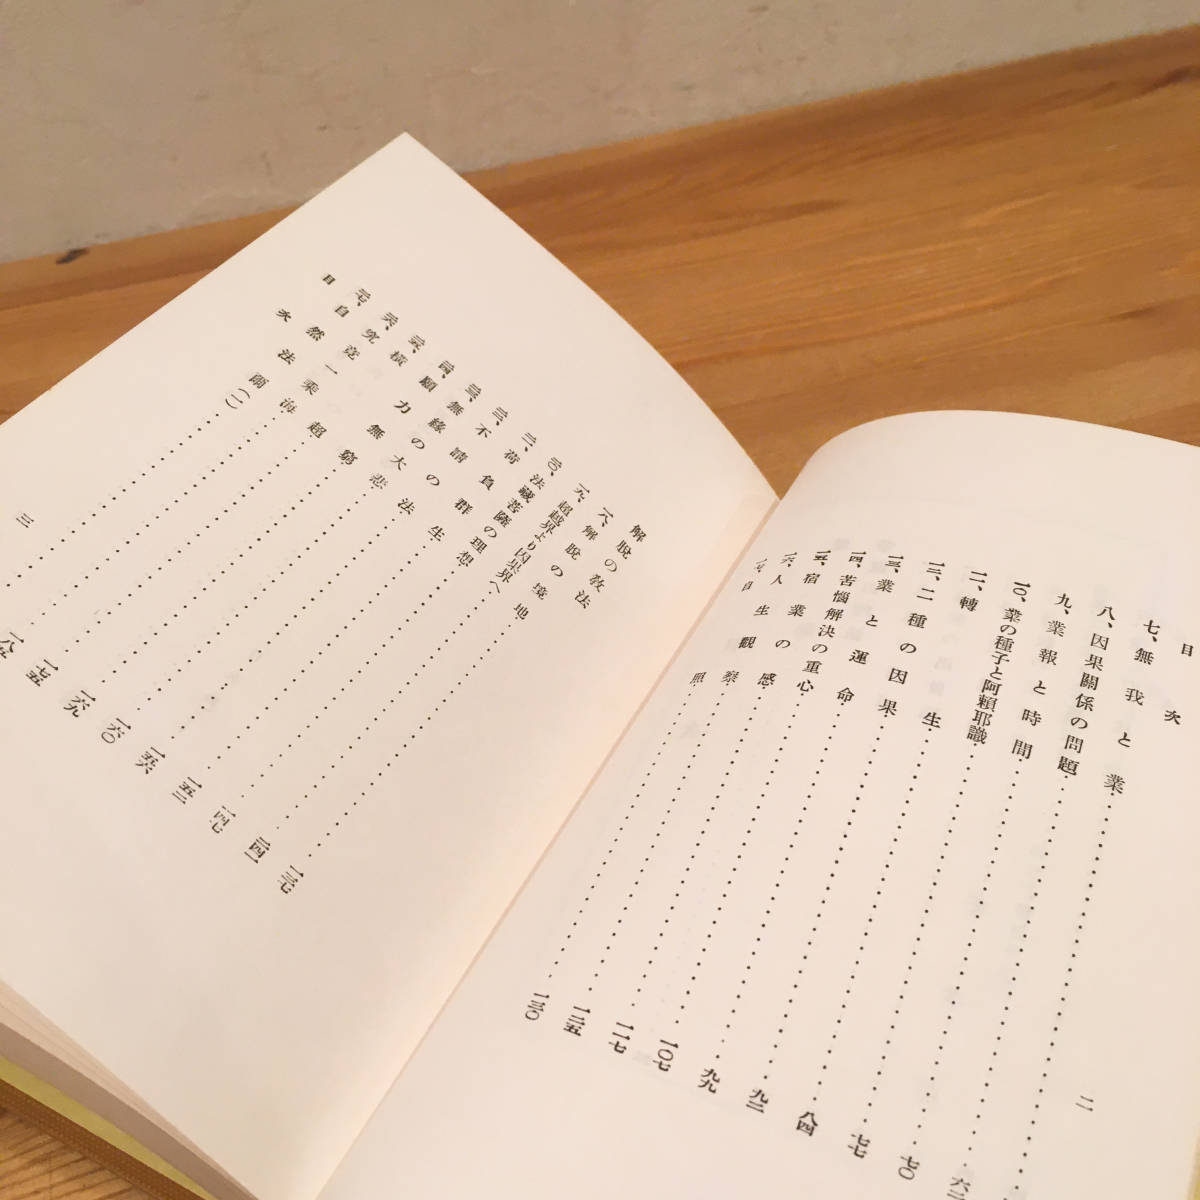 目次
二
七、無我と業
八、因果關係の問題
九、業報と時間
一〇、業の種子と阿賴耶識
一一、轉生……六二
一二、二種の因果……七〇
一三、業と運命……七七
一四、苦惱解決の重心……八四
一五、宿業の感……九二
一六、人生觀察……九九
一七、自照……一〇七
一一七
一二五
一三〇
解脫の敎法
一八、解脫の境地……一三七
一九、超越界より因果界へ
二〇、法藏菩薩の理想
二一、荷負群生
二二、不請の法
二三、無緣の大悲
二四、願力無窮
二五、橫超
二六、究竟一乘海
二七、自然法爾(一)
一四一
一四七
一五二
一五六
一六〇
一六九
一七五
一八五
目次
三